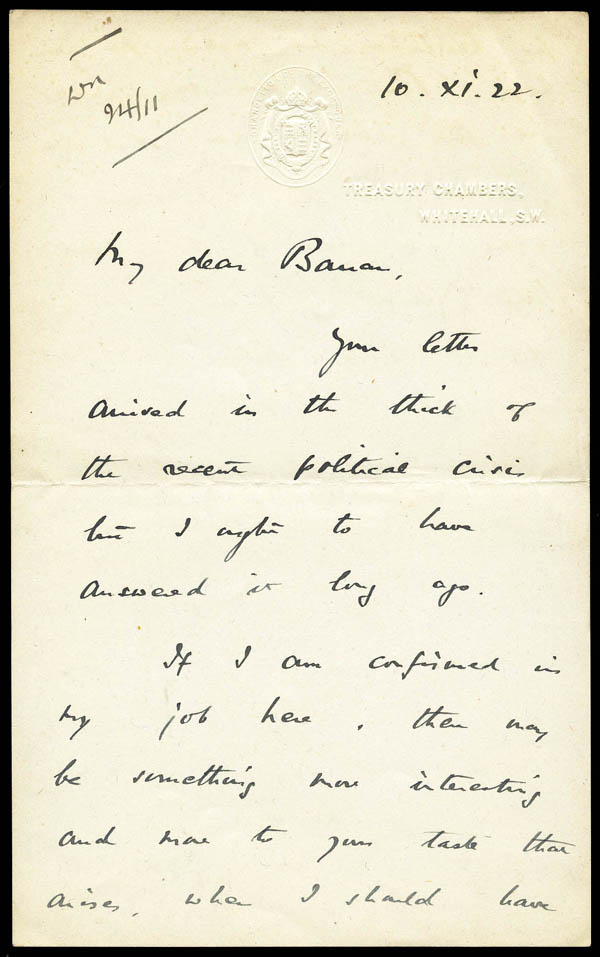 10. XI. 22.
24/11
TREASURY CHAMBERS,
WHITEHALL, S.W.
My dear
Your letter
arrived in the thick of
the recent political crisis
but I ought to have
answered it long ago.
If I am confirmed in
my job here, there may
be something more interesting
and more to your taste that
arises, when I should have